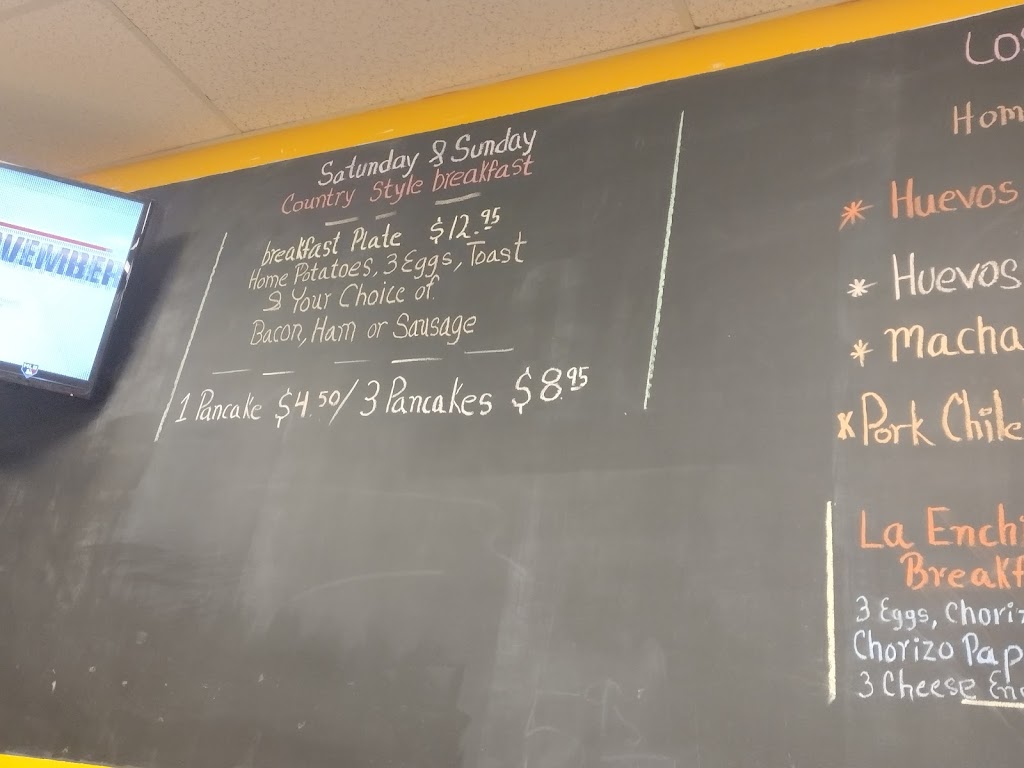 Satunday & Sunday
Country Style breakfast
breakfast Plate $12.95
Home Potatoes, 3 Eggs, Toast
& Your Choice of
Bacon, Ham or Sausage
1 Pancake $4.50 / 3 Pancakes $8.95
VEMBER
Los
Hom
* Huevos
* Huevos
* Macha
x Pork Chile
La Enchi
Breakf
3 Eggs, Choriz
Chorizo Pap
3 Cheese En